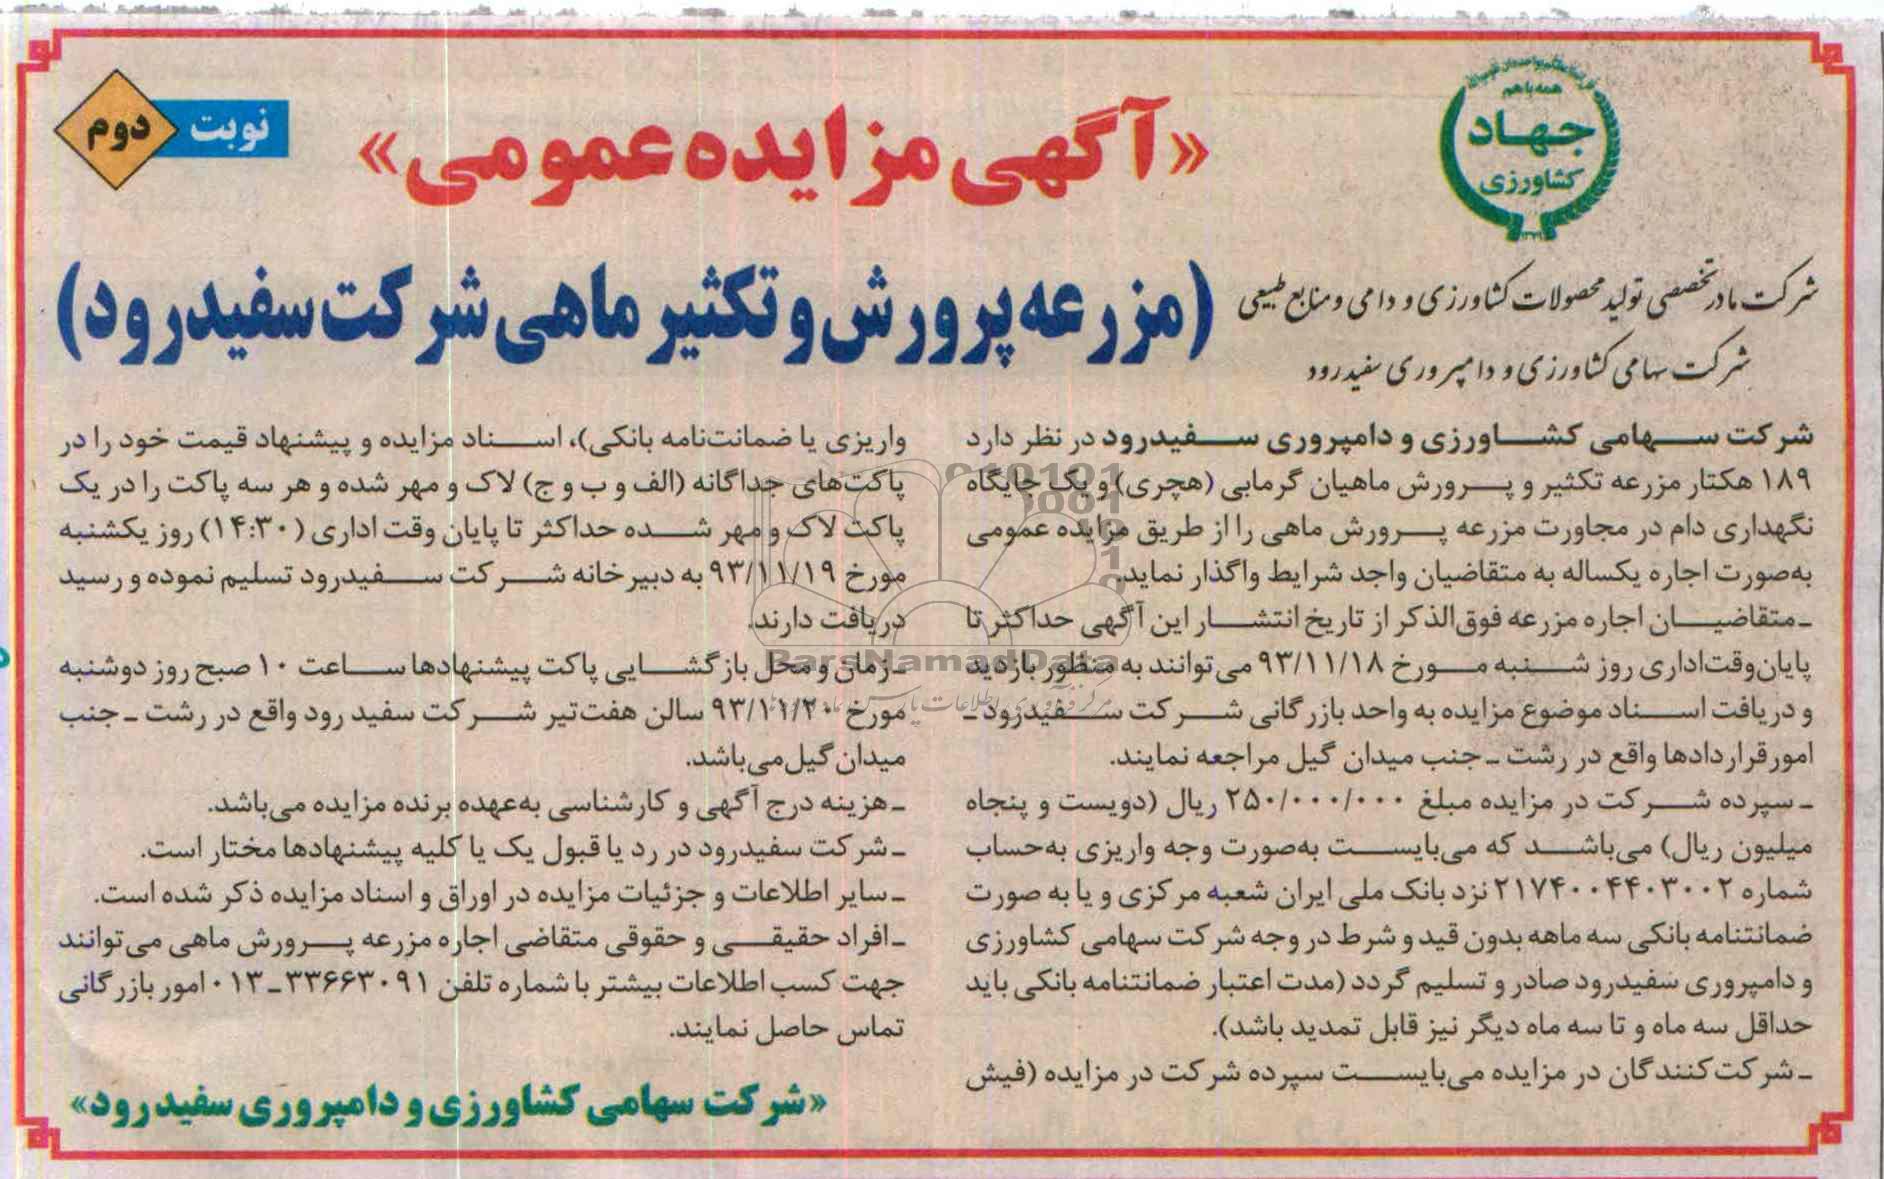 همه با هم
جهاد
کشاورزی
نوبت دوم
«آگهی مزایده عمومی»
(مزرعه پرورش و تکثیر ماهی شرکت سفیدرود)
شرکت مادر تخصصی تولید محصولات کشاورزی و دامی و منابع طبیعی
شرکت سهامی کشاورزی و دامپروری سفیدرود
شرکت سهامی کشاورزی و دامپروری سفیدرود در نظر دارد
۱۸۹ هکتار مزرعه تکثیر و پرورش ماهیان گرمابی (هچری) و یک جایگاه
نگهداری دام در مجاورت مزرعه پرورش ماهی را از طریق مزایده عمومی
به‌صورت اجاره یکساله به متقاضیان واجد شرایط واگذار نماید.
ـ متقاضیان اجاره مزرعه فوق‌الذکر از تاریخ انتشار این آگهی حداکثر تا
پایان‌وقت‌اداری روز شنبه مورخ ۹۳/۱۱/۱۸ می‌توانند به منظور بازدید
و دریافت اسناد موضوع مزایده به واحد بازرگانی شرکت سفیدرود ـ
امور قراردادها واقع در رشت ـ جنب میدان گیل مراجعه نمایند.
ـ سپرده شرکت در مزایده مبلغ ۲۵۰/۰۰۰/۰۰۰ ریال (دویست و پنجاه
میلیون ریال) می‌باشد که می‌بایست به‌صورت وجه واریزی به‌حساب
شماره ۲۱۷۴۰۰۴۴۰۳۰۰۲ نزد بانک ملی ایران شعبه مرکزی و یا به صورت
ضمانتنامه بانکی سه ماهه بدون قید و شرط در وجه شرکت سهامی کشاورزی
و دامپروری سفیدرود صادر و تسلیم گردد (مدت اعتبار ضمانتنامه بانکی باید
حداقل سه ماه و تا سه ماه دیگر نیز قابل تمدید باشد).
ـ شرکت‌کنندگان در مزایده می‌بایست سپرده شرکت در مزایده (فیش
واریزی یا ضمانت‌نامه بانکی)، اسناد مزایده و پیشنهاد قیمت خود را در
پاکت‌های جداگانه (الف و ب و ج) لاک و مهر شده و هر سه پاکت را در یک
پاکت لاک و مهر شده حداکثر تا پایان وقت اداری (۱۴:۳۰) روز یکشنبه
مورخ ۹۳/۱۱/۱۹ به دبیرخانه شرکت سفیدرود تسلیم نموده و رسید
دریافت دارند.
ـ زمان و محل بازگشایی پاکت پیشنهادها ساعت ۱۰ صبح روز دوشنبه
مورخ ۹۳/۱۱/۲۰ سالن هفت‌تیر شرکت سفید رود واقع در رشت ـ جنب
میدان گیل می‌باشد.
ـ هزینه درج آگهی و کارشناسی به‌عهده برنده مزایده می‌باشد.
ـ شرکت سفیدرود در رد یا قبول یک یا کلیه پیشنهادها مختار است.
ـ سایر اطلاعات و جزئیات مزایده در اوراق و اسناد مزایده ذکر شده است.
ـ افراد حقیقی و حقوقی متقاضی اجاره مزرعه پرورش ماهی می‌توانند
جهت کسب اطلاعات بیشتر با شماره تلفن ۳۳۶۶۳۰۹۱ـ۰۱۳ امور بازرگانی
تماس حاصل نمایند.
«شرکت سهامی کشاورزی و دامپروری سفیدرود»
ParsNamadData